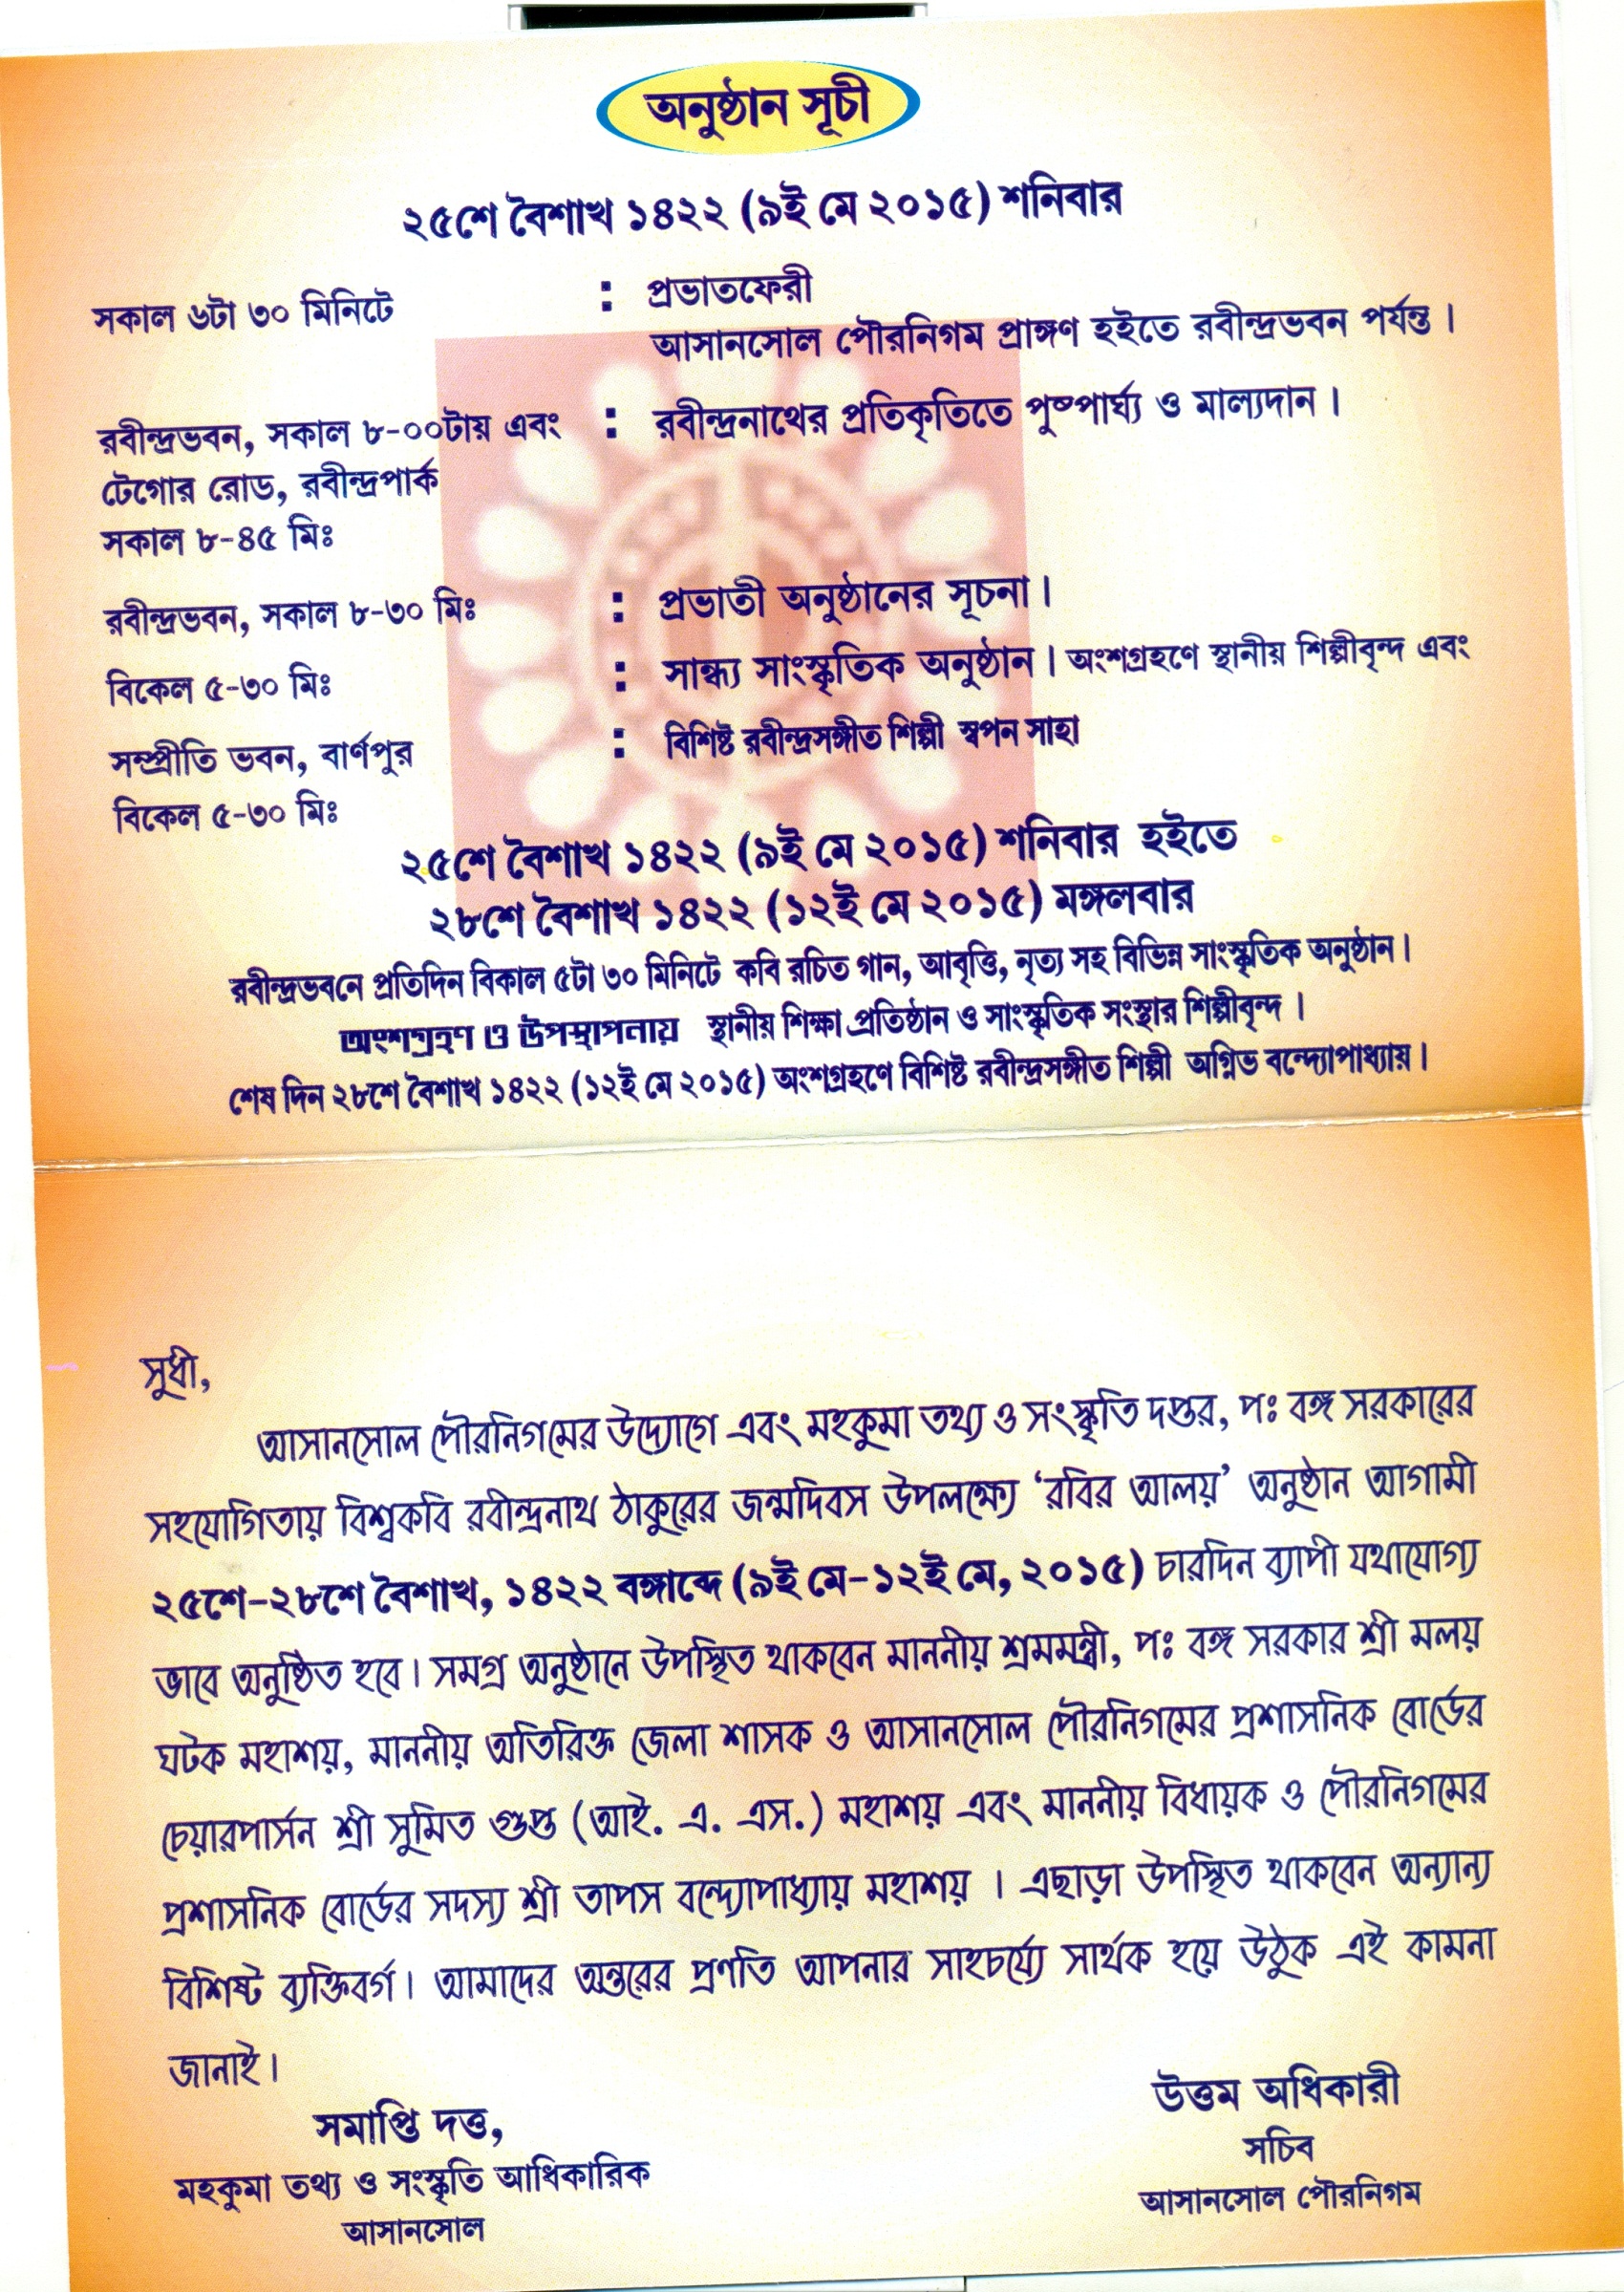 অনুষ্ঠান সূচী
২৫শে বৈশাখ ১৪২২ (৯ই মে ২০১৫) শনিবার
সকাল ৬টা ৩০ মিনিটে : প্রভাতফেরী
আসানসোল পৌরনিগম প্রাঙ্গণ হইতে রবীন্দ্রভবন পর্যন্ত।
রবীন্দ্রভবন, সকাল ৮-০০টায় এবং : রবীন্দ্রনাথের প্রতিকৃতিতে পুষ্পার্ঘ্য ও মাল্যদান।
টেগোর রোড, রবীন্দ্রপার্ক
সকাল ৮-৪৫ মিঃ
রবীন্দ্রভবন, সকাল ৮-৩০ মিঃ : প্রভাতী অনুষ্ঠানের সূচনা।
বিকেল ৫-৩০ মিঃ : সান্ধ্য সাংস্কৃতিক অনুষ্ঠান। অংশগ্রহণে স্থানীয় শিল্পীবৃন্দ এবং
সম্প্রীতি ভবন, বার্ণপুর : বিশিষ্ট রবীন্দ্রসঙ্গীত শিল্পী স্বপন সাহা
বিকেল ৫-৩০ মিঃ
২৫শে বৈশাখ ১৪২২ (৯ই মে ২০১৫) শনিবার হইতে
২৮শে বৈশাখ ১৪২২ (১২ই মে ২০১৫) মঙ্গলবার
রবীন্দ্রভবনে প্রতিদিন বিকাল ৫টা ৩০ মিনিটে কবি রচিত গান, আবৃত্তি, নৃত্য সহ বিভিন্ন সাংস্কৃতিক অনুষ্ঠান।
অংশগ্রহণ ও উপস্থাপনায় স্থানীয় শিক্ষা প্রতিষ্ঠান ও সাংস্কৃতিক সংস্থার শিল্পীবৃন্দ।
শেষ দিন ২৮শে বৈশাখ ১৪২২ (১২ই মে ২০১৫) অংশগ্রহণে বিশিষ্ট রবীন্দ্রসঙ্গীত শিল্পী অগ্নিভ বন্দ্যোপাধ্যায়।
সুধী,
আসানসোল পৌরনিগমের উদ্যোগে এবং মহকুমা তথ্য ও সংস্কৃতি দপ্তর, পঃ বঙ্গ সরকারের
সহযোগিতায় বিশ্বকবি রবীন্দ্রনাথ ঠাকুরের জন্মদিবস উপলক্ষ্যে ‘রবির আলয়’ অনুষ্ঠান আগামী
২৫শে-২৮শে বৈশাখ, ১৪২২ বঙ্গাব্দে (৯ই মে-১২ই মে, ২০১৫) চারদিন ব্যাপী যথাযোগ্য
ভাবে অনুষ্ঠিত হবে। সমগ্র অনুষ্ঠানে উপস্থিত থাকবেন মাননীয় শ্রমমন্ত্রী, পঃ বঙ্গ সরকার শ্রী মলয়
ঘটক মহাশয়, মাননীয় অতিরিক্ত জেলা শাসক ও আসানসোল পৌরনিগমের প্রশাসনিক বোর্ডের
চেয়ারপার্সন শ্রী সুমিত গুপ্ত (আই. এ. এস.) মহাশয় এবং মাননীয় বিধায়ক ও পৌরনিগমের
প্রশাসনিক বোর্ডের সদস্য শ্রী তাপস বন্দ্যোপাধ্যায় মহাশয়। এছাড়া উপস্থিত থাকবেন অন্যান্য
বিশিষ্ট ব্যক্তিবর্গ। আমাদের অন্তরের প্রণতি আপনার সাহচর্য্যে সার্থক হয়ে উঠুক এই কামনা
জানাই।
সমাপ্তি দত্ত,
মহকুমা তথ্য ও সংস্কৃতি আধিকারিক
আসানসোল
উত্তম অধিকারী
সচিব
আসানসোল পৌরনিগম